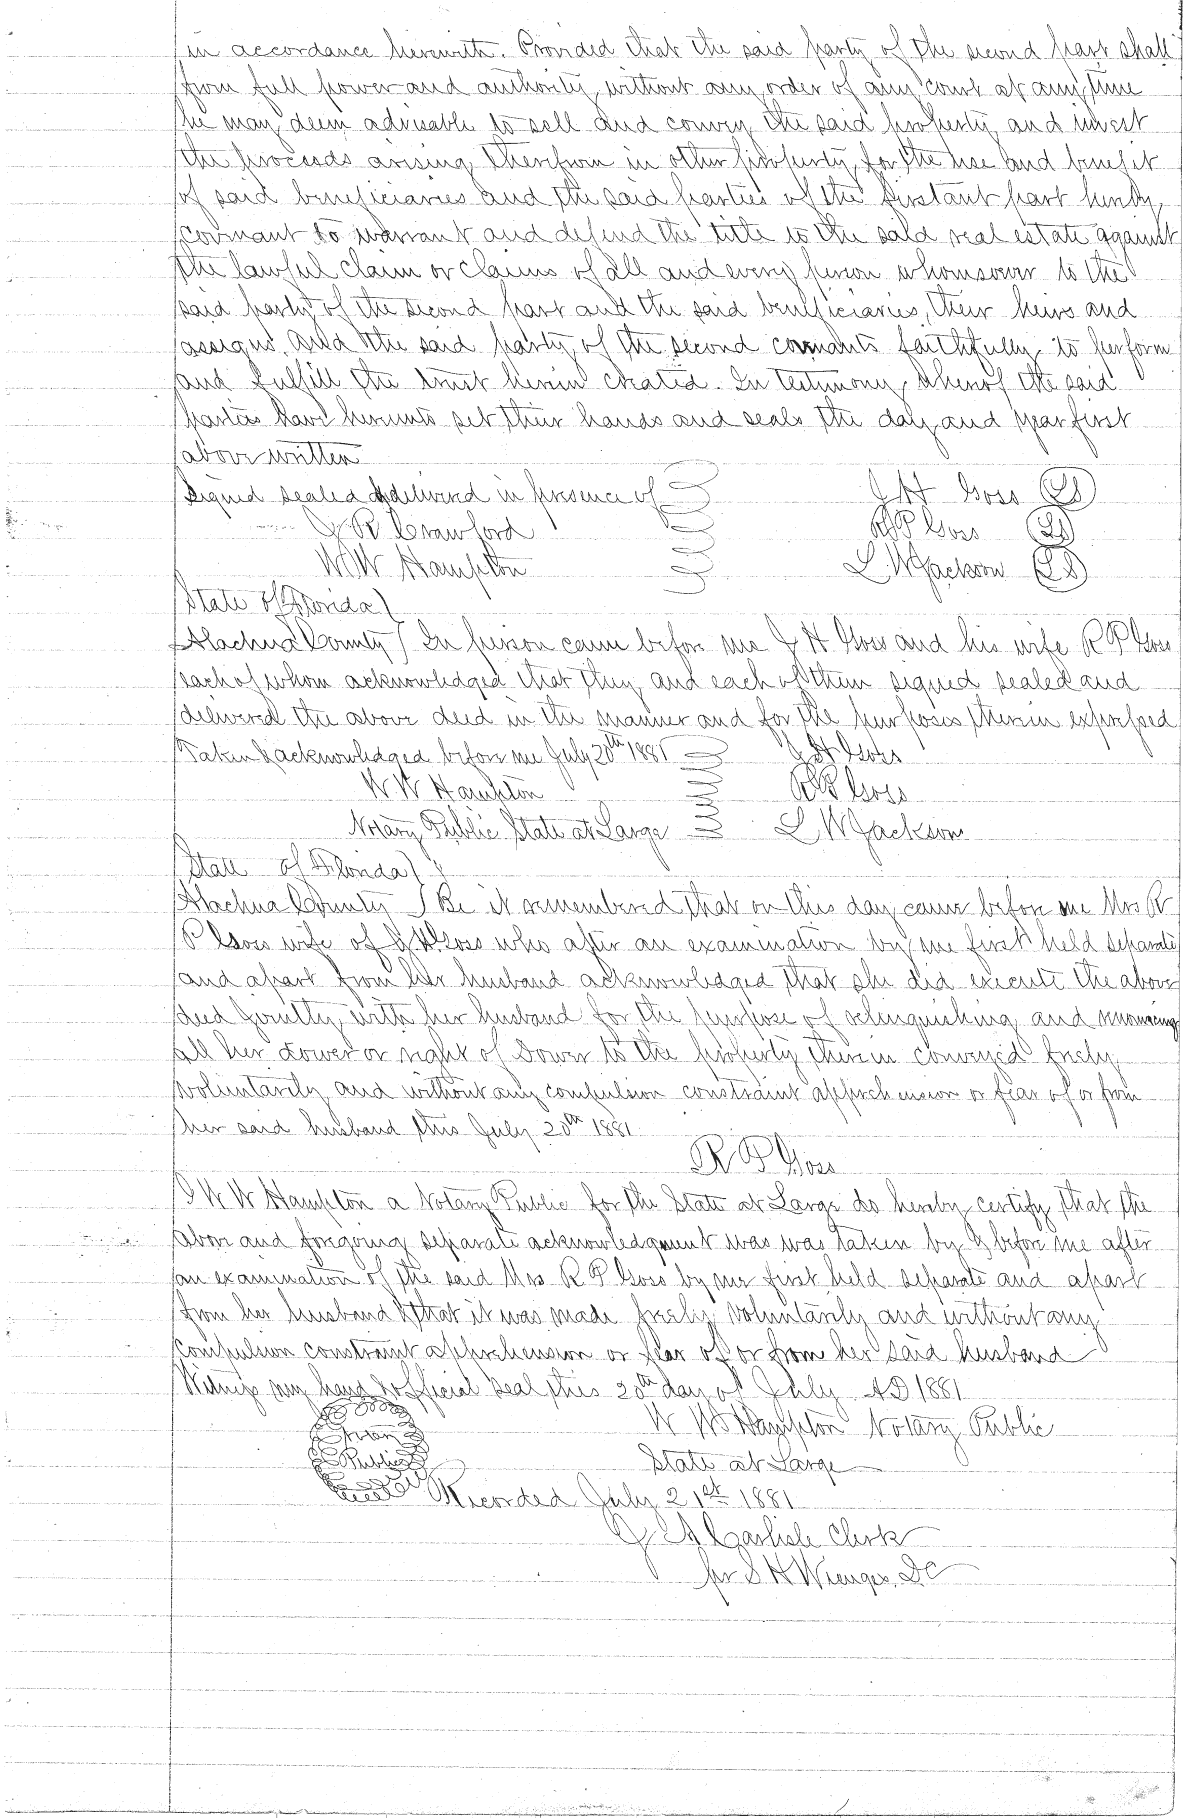 in accordance herewith. Provided that the said party of the second part shall
from full power and authority without any order of any court at any time
he may deem advisable to sell and convey the said property and invest
the proceeds arising therefrom in other property for the use and benefit
of said beneficiaries and the said parties of the firstant part hereby
covenant to warrant and defend the title to the said real estate against
the lawful claim or claims of all and every person whomsoever to the
said party of the second part and the said beneficiaries, their heirs and
assigns. And the said party of the second covenants faithfully to perform
and fulfill the trust herein created. In testimony whereof the said
parties have hereunto set their hands and seals the day and year first
above written
Signed sealed & delivered in presence of J H Goss LS
J R Crawford R P Goss LS
W W Hampton L W Jackson LS
State of Florida)
Alachua County) In person came before me J H Goss and his wife R P Goss
each of whom acknowledged that they and each of them signed sealed and
delivered the above deed in the manner and for the purposes therein expressed
Taken & acknowledged before me July 20th 1881 J H Goss
W W Hampton R P Goss
Notary Public State at Large L W Jackson
State of Florida)
Alachua County ) Be it remembered that on this day came before me Mrs R
P Goss wife of J H Goss who after an examination by me first held separate
and apart from her husband acknowledged that she did execute the above
deed jointly with her husband for the purpose of relinquishing and renouncing
all her dower or right of Dower to the property therein conveyed freely
voluntarily and without any compulsion constraint apprehension or fear of or from
her said husband this July 20th 1881
R P Goss
I W W Hampton a Notary Public for the State at Large do hereby certify that the
above and foregoing separate acknowledgment was was taken by & before me after
an examination of the said Mrs R P Goss by me first held separate and apart
from her husband & that it was made freely voluntarily and without any
compulsion constraint apprehension or fear of or from her said husband
Witness my hand & official seal this 20th day of July AD 1881
W W Hampton Notary Public
Notary
Public
Seal
State at Large
Recorded July 21st 1881
J A Carlisle Clerk
per S H Wienges DC